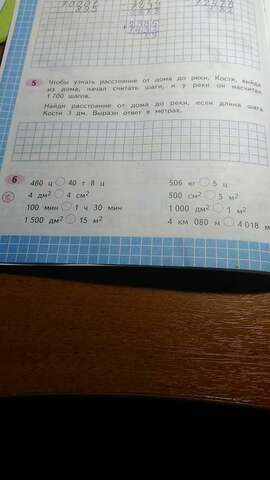 5 Чтобы узнать расстояние от дома до реки, Костя, выйдя
из дома, начал считать шаги, и у реки он насчитал
1 700 шагов.
Найди расстояние от дома до реки, если длина шага
Кости 3 дм. Вырази ответ в метрах.
6
480 ц 40 т 8 ц 506 кг 5 ц
4 дм² 4 см² 500 см² 5 м²
100 мин 1 ч 30 мин 1 000 дм² 1 м²
1 500 дм² 15 м² 4 км 080 м 4 018 м